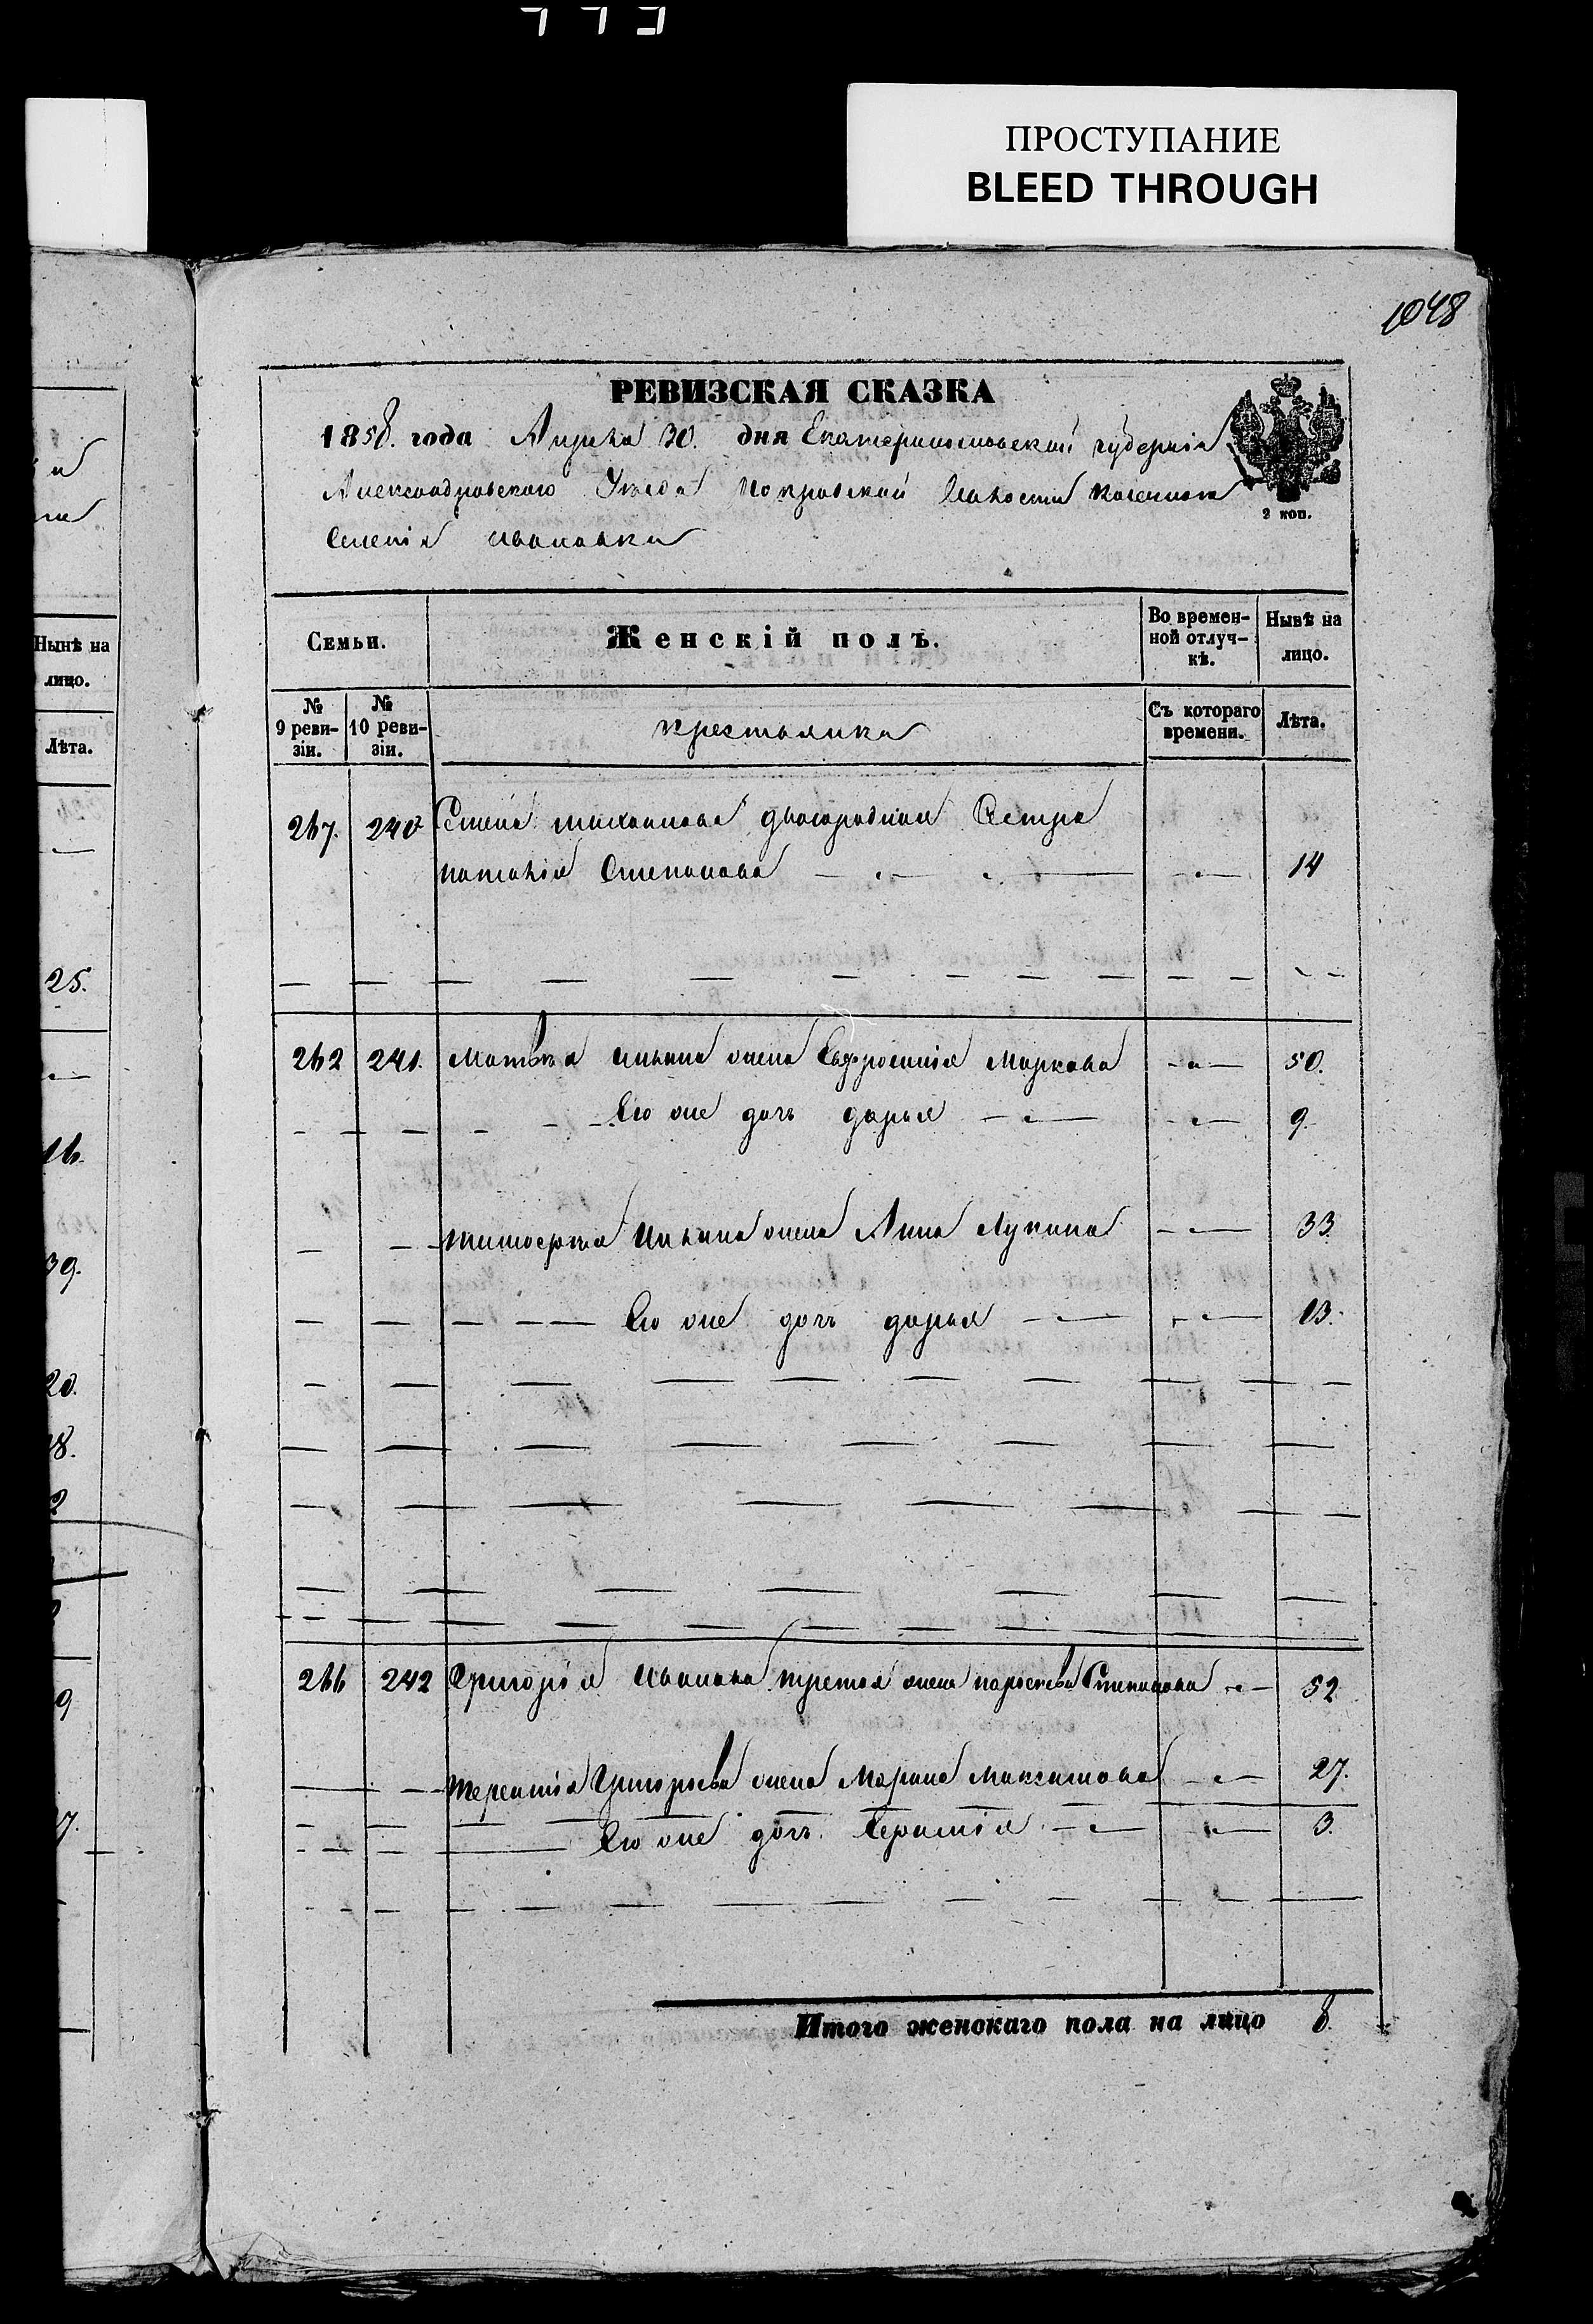 ПРОСТУПАНИЕ
BLEED THROUGH
1048
РЕВИЗСКАЯ СКАЗКА
1858. года Апреля 30. дня Екатеринославской губерніи
Александровского Уезда Покровской Волости казенного
Селенія Ивановки
2 коп.
Семьи.
Женскій полъ.
Во времен-
ной отлуч-
кѣ.
Нынѣ на
лицо.
№
9 реви-
зіи.
№
10 реви-
зіи.
крестьянка
Съ котораго
времени.
Лѣта.
267. 240 двоюродная Сестра
наталія Степанова 14
262 241. Матвѣя Ильина жена Евфросинія Маркова 50.
Его же дочь дарья 9.
тимофея Ильина жена Анна Лукина 33.
Его же дочь дарья 13.
266 242 Григорія Иванова третья жена параскева Степанова 52
терентія Григорьева жена Марина Максимова 27.
Его же дочь 3.
Итого женскаго пола на лицо 8.
Нынѣ на
лицо.
Лѣта.
25.
16.
39.
20.